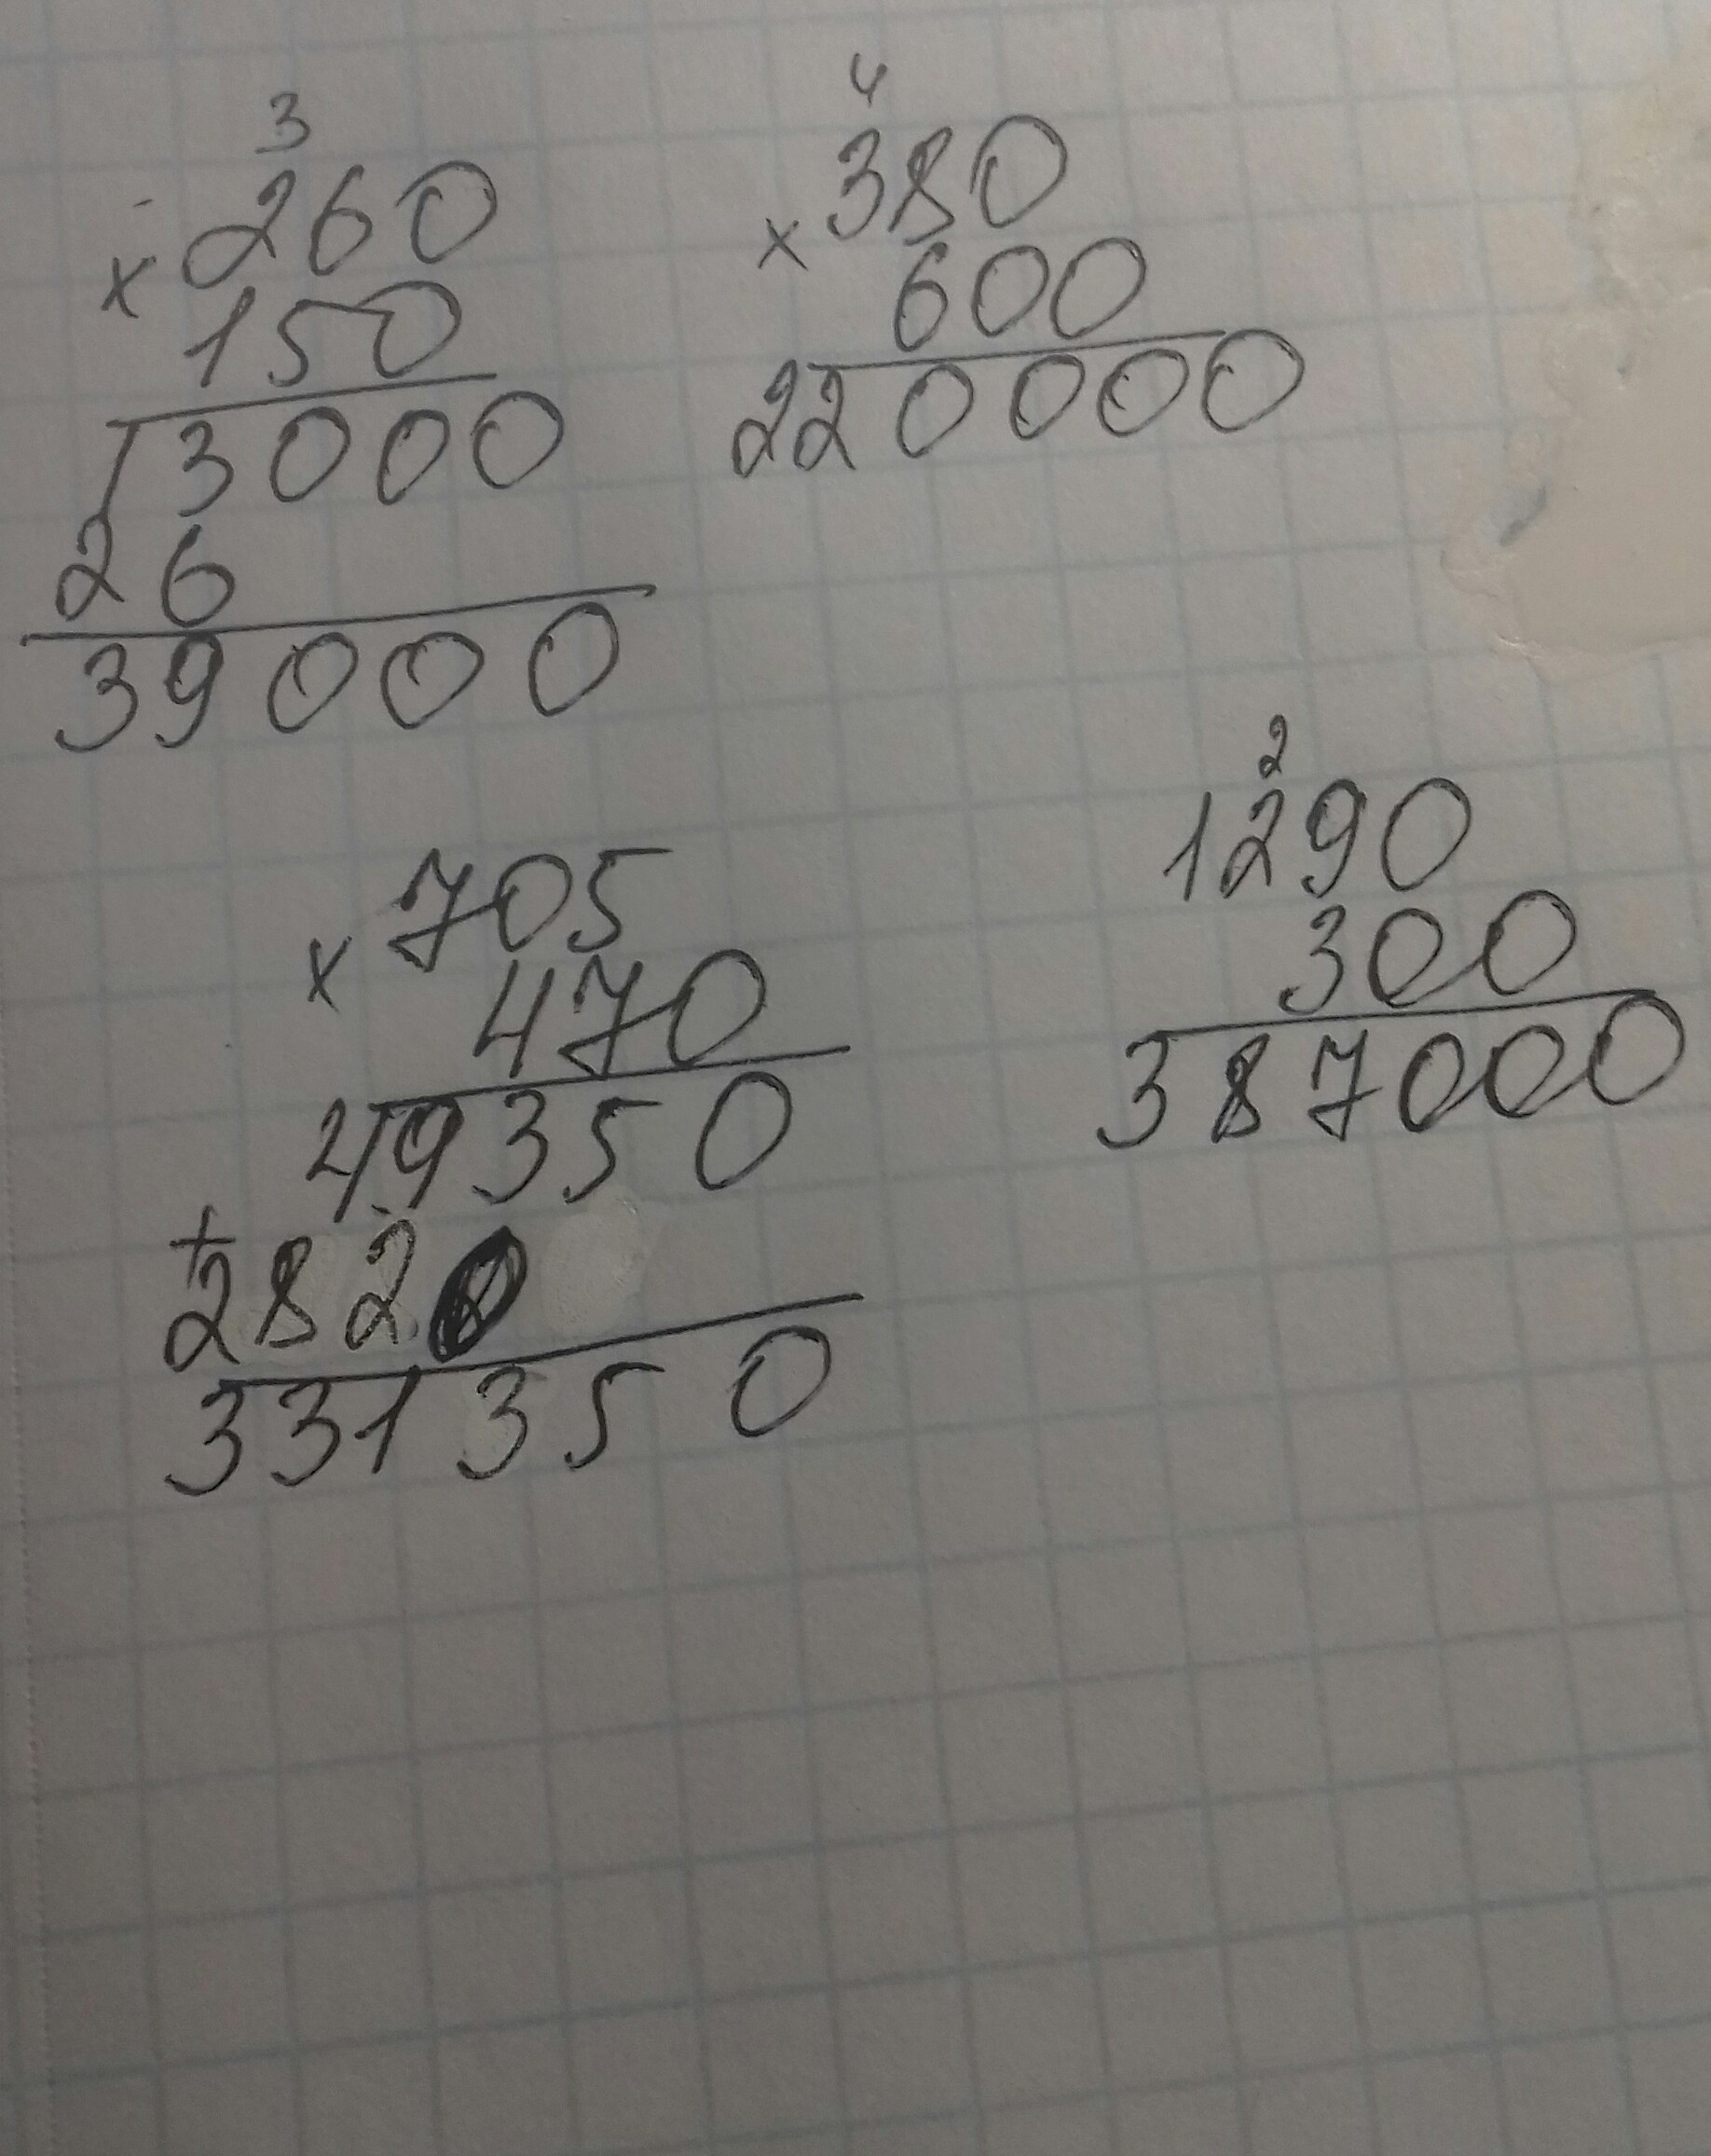 3
× 260
150
13000
26
39000
4
× 380
600
220000
× 705
470
49350
+
282
331350
2
1290
300
387000